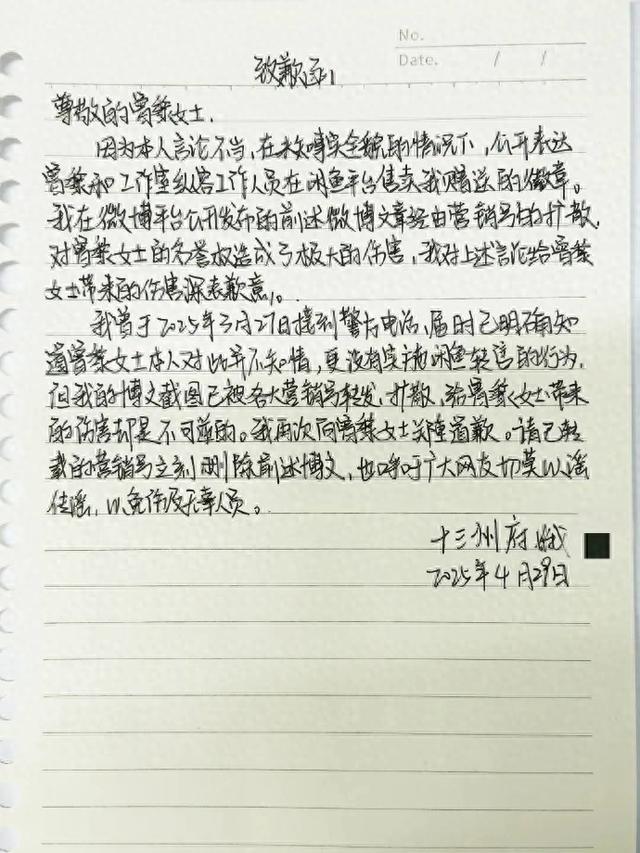 No.
Date. / /
致歉函
尊敬的曾黎女士,
因为本人言论不当,在未核实全貌的情况下,公开表达
曾黎和工作室纵容工作人员在闲鱼平台售卖我赠送的徽章。
我在微博平台公开发布的前述微博文章经由营销号的扩散,
对曾黎女士的名誉权造成了极大的伤害,我对上述言论给曾黎
女士带来的伤害深表歉意。
我曾于2025年3月27日接到警方电话,届时已明确知
道曾黎女士本人对此并不知情,更没有实施闲鱼转售的行为,
但我的博文截图已被各大营销号转发、扩散,给曾黎女士带来
的伤害却是不可逆的。我再次向曾黎女士关隆道歉。请已转
载的营销号立刻删除前述博文,也呼吁广大网友切莫以谣
传谣,以免伤及无辜人员。
十三州府
2025年4月29日